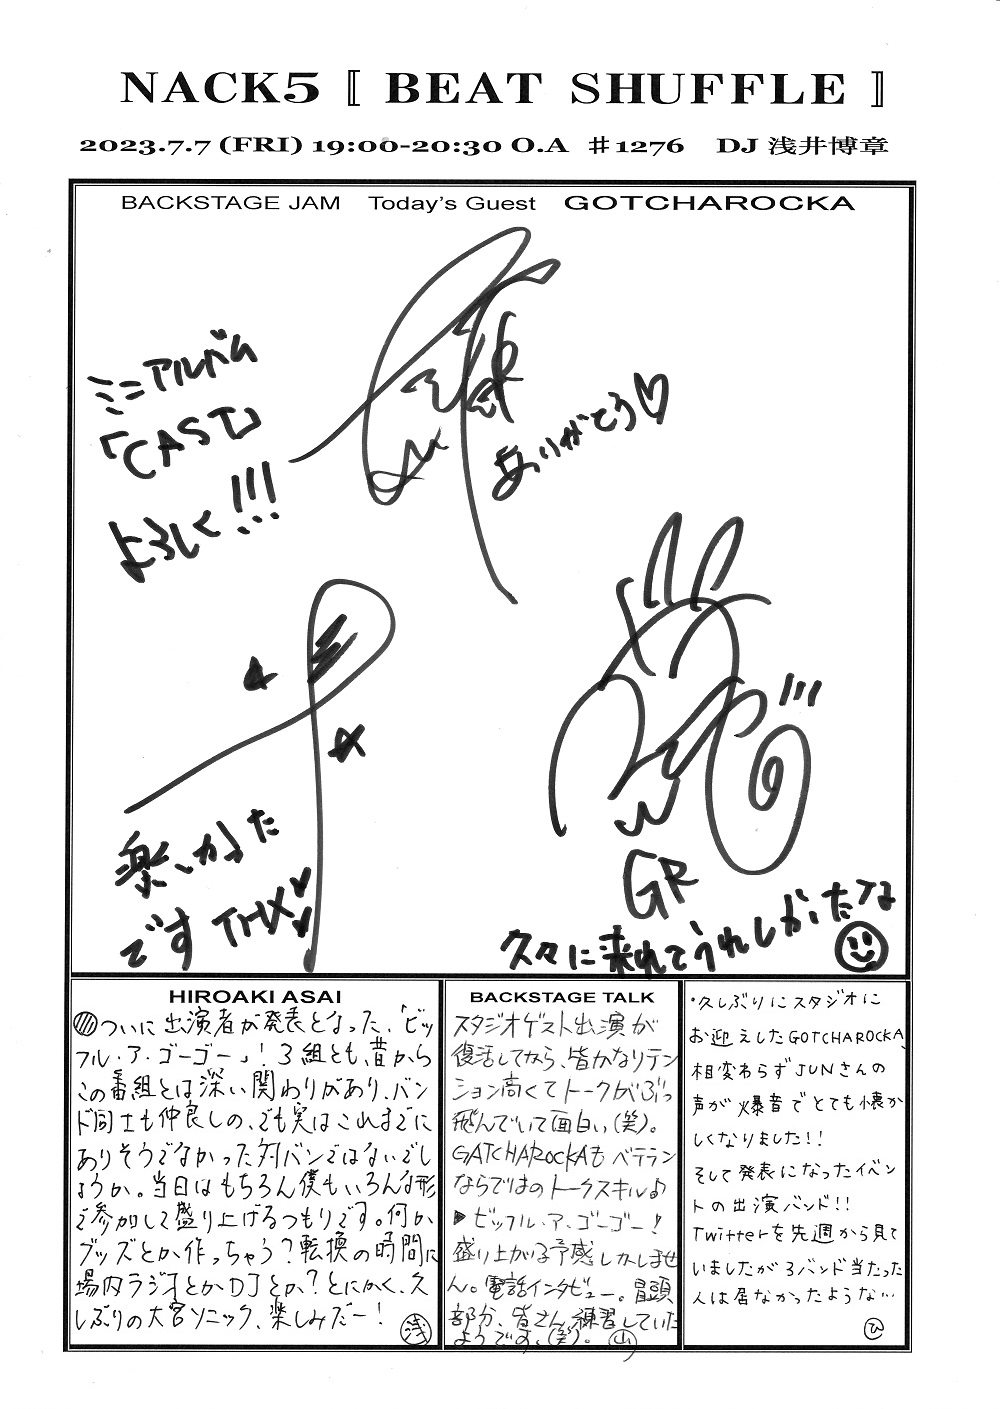 NACK5 〚 BEAT SHUFFLE 〛
2023.7.7 (FRI) 19:00-20:30 O.A ♯1276 DJ 浅井博章
BACKSTAGE JAM Today's Guest GOTCHAROCKA
ミニアルバム
「CAST」
よろしく!!!
ありがとう♡
楽しかった
です THX
GR
久々に来れてうれしかったな
HIROAKI ASAI
ついに出演者が発表となった、「ビッ
フル・ア・ゴーゴー」! 3組とも、昔から
この番組とは深い関わりがあり、バン
ド同士も仲良しの、でも実はこれまでに
ありそうでなかった対バンではないでし
ょうか。当日はもちろん僕もいろんな形
で参加して盛り上げるつもりです。何か
グッズとか作っちゃう?転換の時間に
場内ラジオとかDJとか?とにかく、久
しぶりの大宮ソニック、楽しみだー!
浅
BACKSTAGE TALK
スタジオゲスト出演が
復活してから、皆かなりテン
ション高くてトークがぶっ
飛んでいて面白い(笑)。
GATCHAROCKAもベテラン
ならではのトークスキル♪
▶ビッフル・ア・ゴーゴー!
盛り上がる予感しかしませ
ん。電話インタビュー。冒頭
部分、皆さん練習していた
ようです。(笑)。 山
・久しぶりにスタジオに
お迎えしたGOTCHAROCKA、
相変わらずJUNさんの
声が爆音でとても懐か
しくなりました!!
そして発表になったイベン
トの出演バンド!!
Twitterを先週から見て
いましたが3バンド当たった
人は居なかったような…
ひ